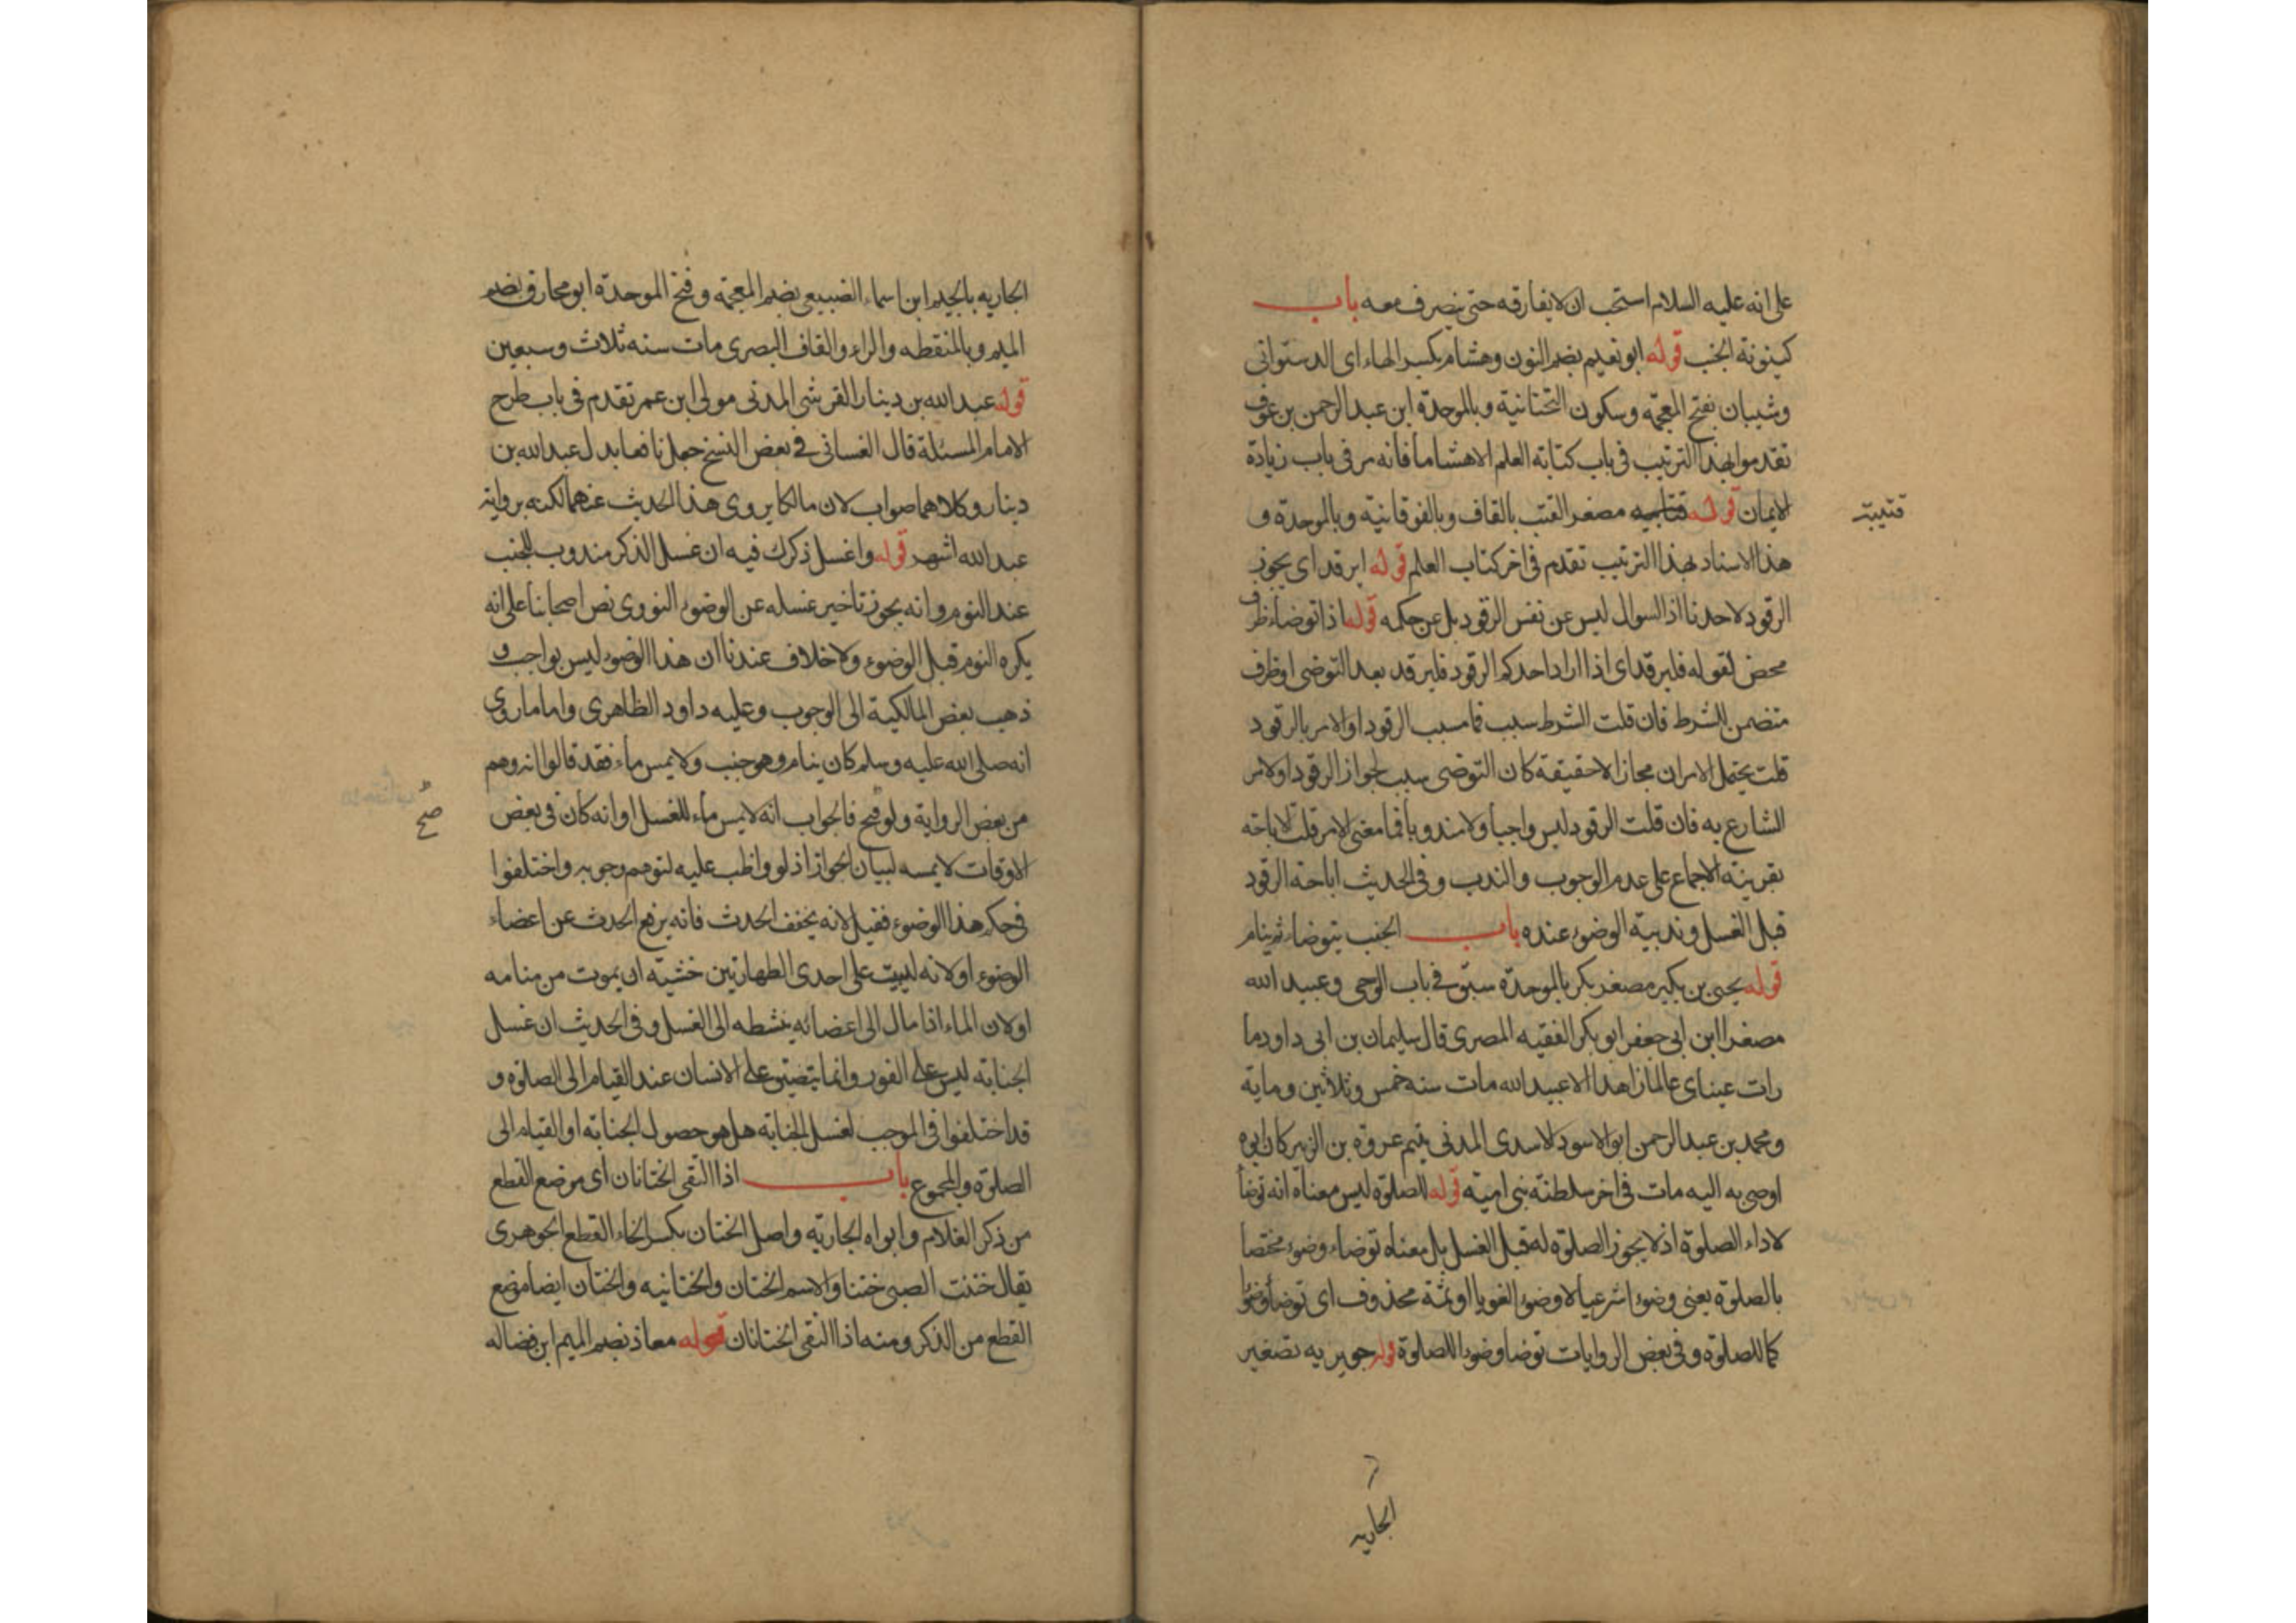 على انه عليه السلام استحب ان لا يفارقه حتى ينصرف معه باب
كينونة الجنب قوله ابو نعيم بضم النون وهشام بكسر الهاء اى الدستوائى
وشيبان بفتح المعجمة وسكون التحتانية وبالموحدة ابن عبد الرحمن بن عوف
تقدموا بهذا الترتيب فى باب كتابة العلم الا هشاما فانه مر فى باب زيادة
الايمان قوله مصغر القتب بالقاف وبالفوقانية وبالموحدة و
قتيبة
هذا الاسناد بهذا الترتيب تقدم فى اخر كتاب العلم قوله ايرقد اى يجوز
الرقود لاحدنا اذ السوال ليس عن نفس الرقود بل عن حكمه قوله اذا توضأ ظرف
محض لقوله فليرقد اى اذا اراد احدكم الرقود فليرقد بعد التوضى او ظرف
متضمن للشرط فان قلت الشرط سبب فما سبب الرقود او الامر بالرقود
قلت يحتمل الامران مجازا لا حقيقة كان التوضى سبب لجواز الرقود او لامر
الشارع به فان قلت الرقود ليس واجبا ولا مندوبا فما معنى الامر قلت الاباحة
بقرينة الاجماع على عدم الوجوب والندب وفى الحديث اباحة الرقود
قبل الغسل وندبية الوضوء عنده باب الجنب يتوضاء ثم ينام
قوله يحيى بن بكير مصغر بكر بالموحدة سبق فى باب الوحى وعبيد الله
مصغرا ابن ابى جعفر ابو بكر الفقيه المصرى قال سليمان بن ابى داود ما
رات عيناى عالما زاهدا الا عبيد الله مات سنه خمس وثلاثين وماية
ومحمد بن عبد الرحمن ابو الاسود الاسدى المدنى يتيم عروة بن الزبير كان ابوه
اوصى به اليه مات فى اخر سلطنة بنى امية قوله للصلوة ليس معناه انه توضأ
لاداء الصلوة اذ لا يجوز الصلوة له قبل الغسل بل معناه توضاء وضوء مختصا
بالصلوة يعنى وضوءا شرعيا لا وضوءا لغويا او ثمة محذوف اى توضأ وضوءا
كما للصلوة وفى بعض الروايات توضا وضوءا للصلوة قوله جويريه تصغير
الجاريه
الجاريه بالجيم ابن اسماء الضبيعى بضم المعجمة وفتح الموحدة ابو مخارق بضم
الميم وبالمنقطه والراء والقاف البصرى مات سنه ثلاث وسبعين
قوله عبد الله بن دينار القرشى المدنى مولى ابن عمر تقدم فى باب طرح
الامام المسئلة قال الغسانى فى بعض النسخ جعل نافعا بدل عبد الله بن
دينار وكلاهما صواب لان مالكا يروى هذا الحديث عنهما لكنه برواية
عبد الله اشهر قوله واغسل ذكرك فيه ان غسل الذكر مندوب للجنب
عند النوم وانه يجوز تاخير غسله عن الوضوء النووى نص اصحابنا على انه
يكره النوم قبل الوضوء ولا خلاف عندنا ان هذا الوضوء ليس بواجب و
ذهب بعض المالكية الى الوجوب وعليه داود الظاهرى واما ما روى
انه صلى الله عليه وسلم كان ينام وهو جنب ولا يمس ماء فقد قالوا انه وهم
من بعض الرواية ولو فتح فالجواب انه لا يمس ماء للغسل او انه كان فى بعض
صح
الاوقات لا يمسه لبيان الجواز اذ لو واظب عليه لتوهم وجوبه واختلفوا
فى حكم هذا الوضوء فقيل لانه يخفف الحدث فانه يرفع الحدث عن اعضاء
الوضوء او لانه ليبيت على احدى الطهارتين خشية ان يموت من منامه
او لان الماء اذا مال الى اعضائه ينشطه الى الغسل وفى الحديث ان غسل
الجنابة ليس على الفور وانما يتضيق على الانسان عند القيام الى الصلوة و
قد اختلفوا فى الموجب لغسل الجنابة هل هو حصول الجنابة او القيام الى
الصلوة والمجموع باب اذا التقى الختانان اى موضع القطع
من ذكر الغلام وابواه الجارية واصل الختان بكسر الخاء القطع الجوهرى
يقال ختنت الصبى ختنا والاسم الختان والختانيه والختان ايضا موضع
القطع من الذكر ومنه اذا التقى الختانان قوله معاذ بضم الميم ابن فضاله